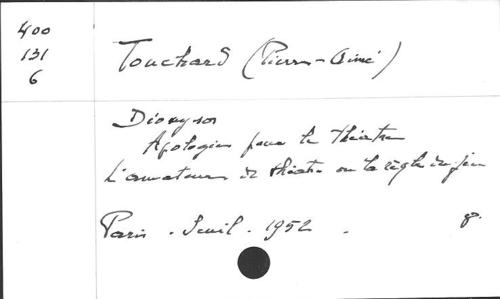 400
131
6
Touchard (Pierre-Aimé)
Dionysos
Apologie pour le théâtre
L'amateur de théâtre ou la règle du jeu
Paris . Seuil . 1952 . 8°